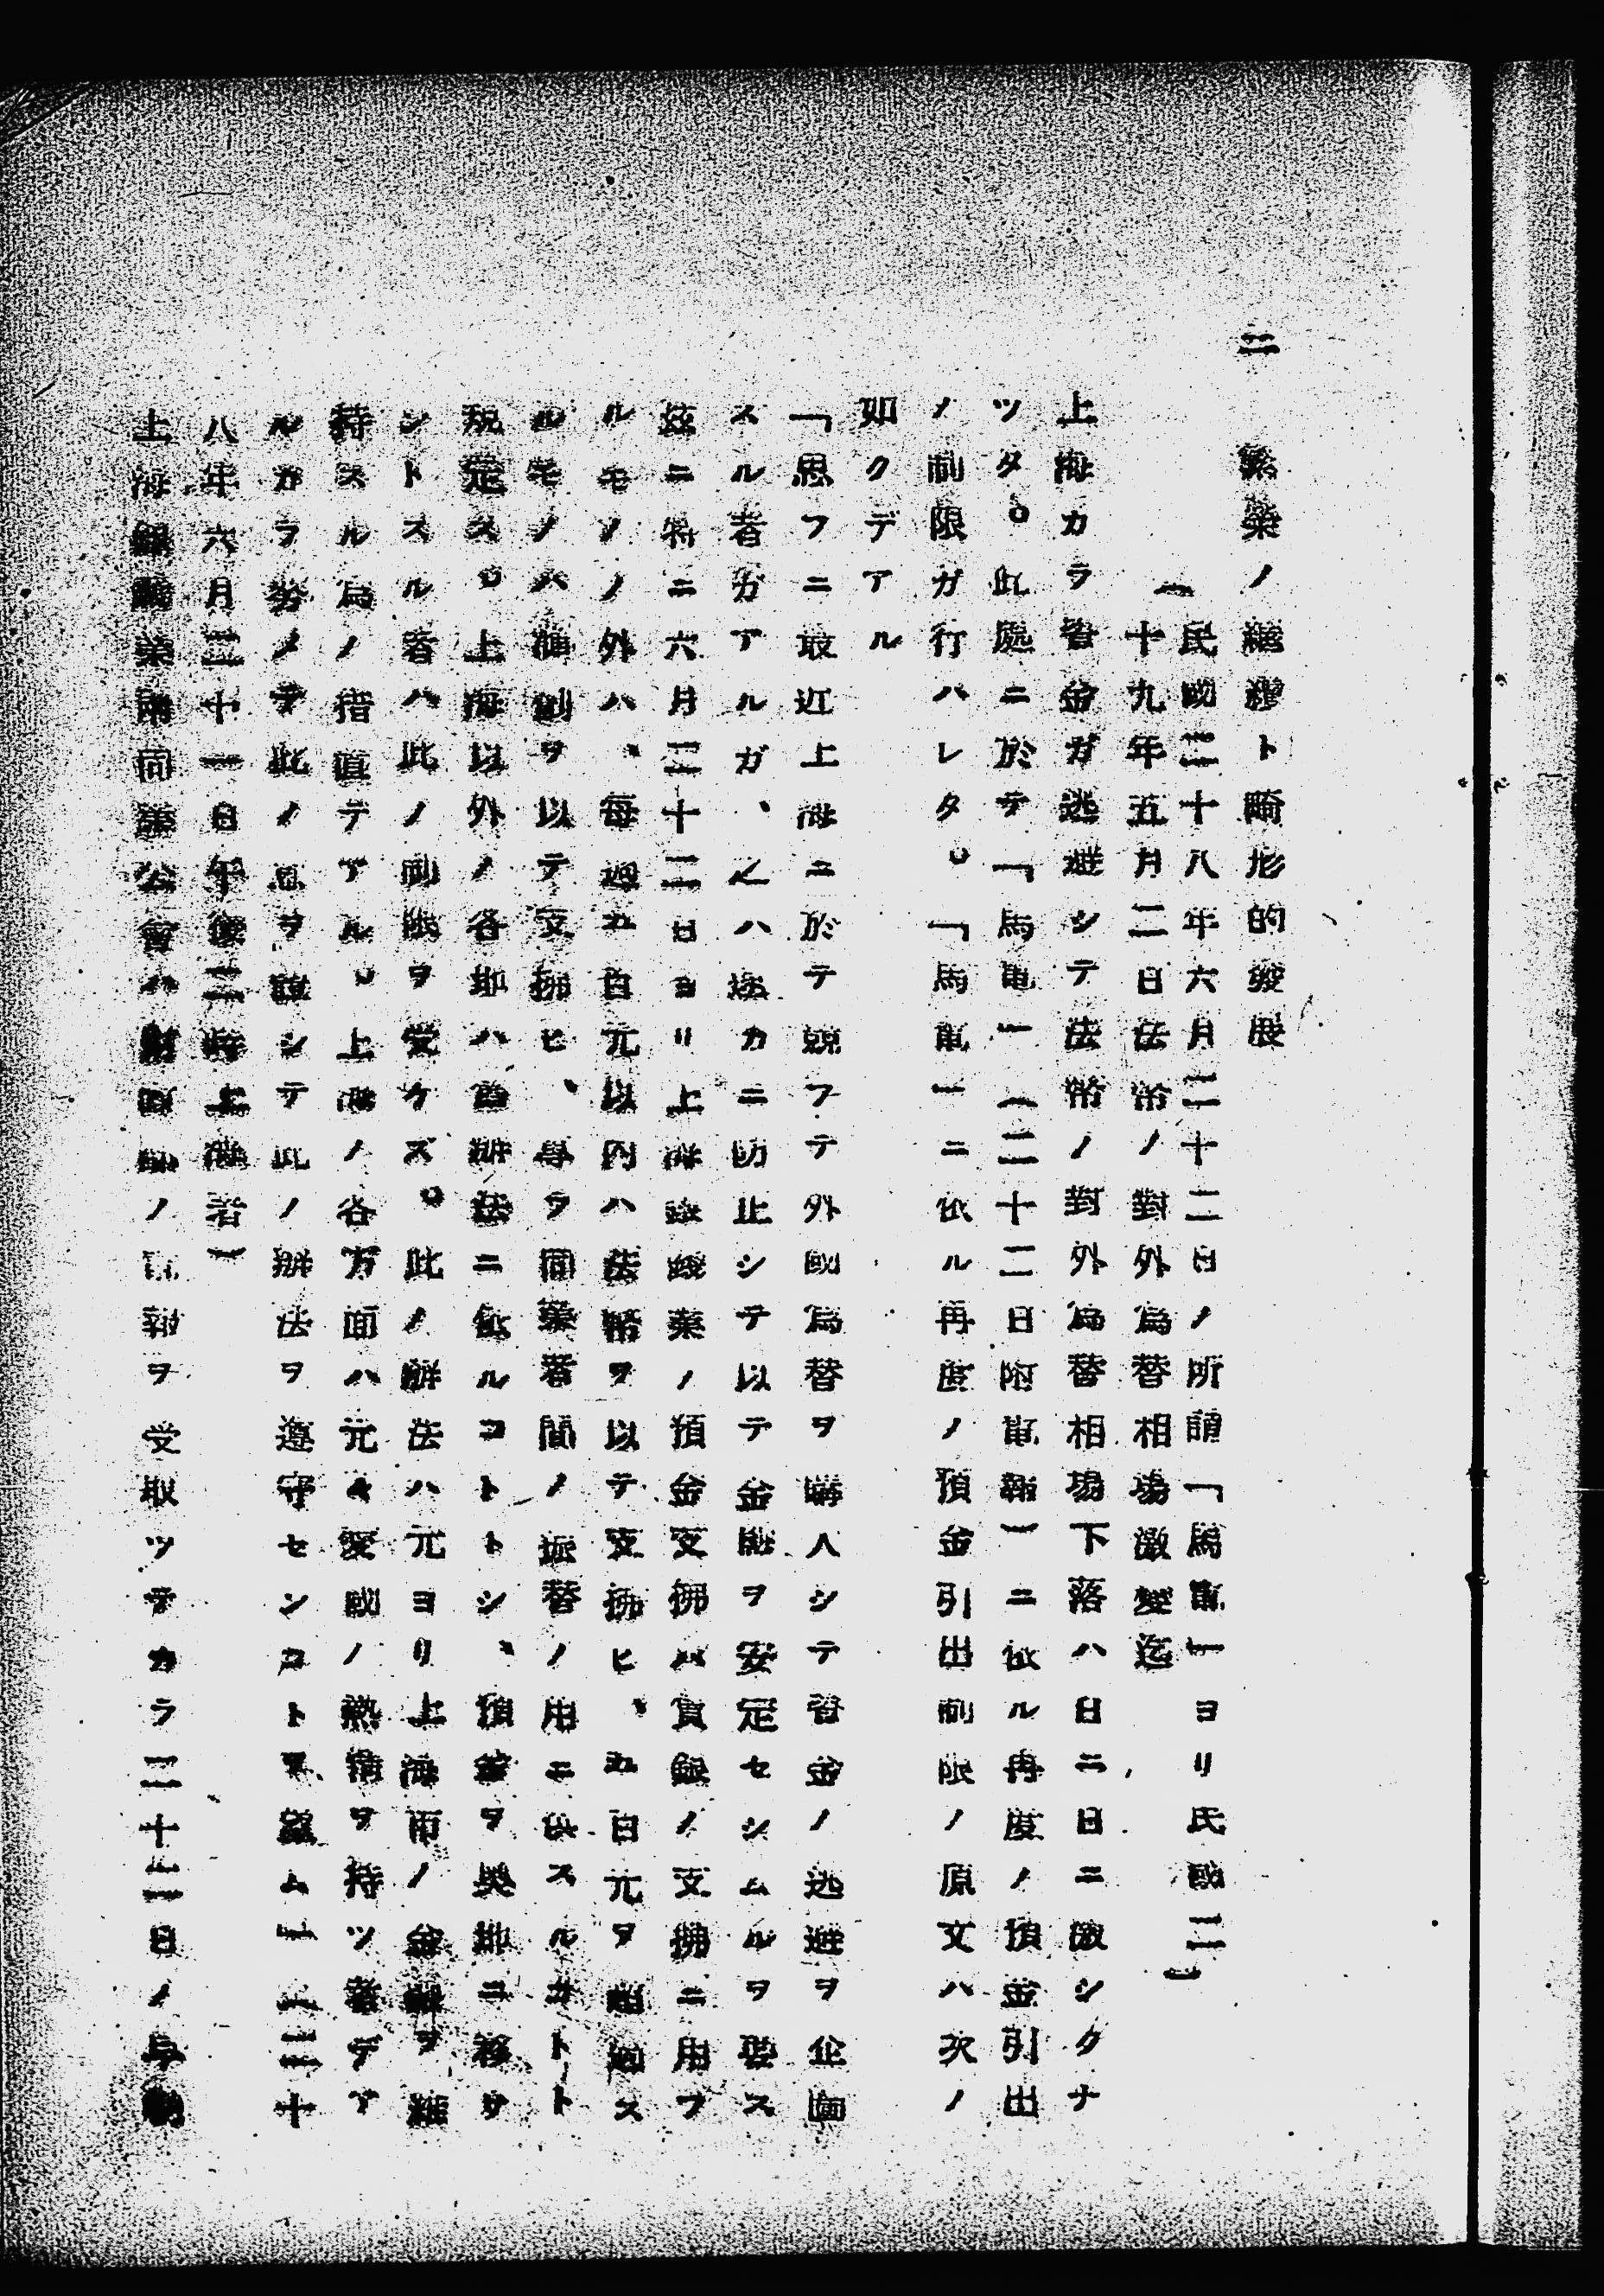 三　繁榮ノ紕繆ト畸形的發展
（民國二十八年六月二十二日ノ所謂「馬電」ヨリ民國二
十九年五月二日法幣ノ對外爲替相場激變迄）
上海カラ資金ガ逃避シテ法幣ノ對外爲替相場下落ハ日ニ日ニ激シクナ
ツタ。此處ニ於テ「馬電」（二十二日附電報）ニ依ル再度ノ預金引出
ノ制限ガ行ハレタ。「馬電」ニ依ル再度ノ預金引出制限ノ原文ハ次ノ
如クデアル
「思フニ最近上海ニ於テ競フテ外國爲替ヲ購入シテ資金ノ逃避ヲ企圖
スル者ガアルガ、之ハ速カニ防止シテ以テ金融ヲ安定セシムルヲ要ス
茲ニ特ニ六月二十二日ヨリ上海銀錢業ノ預金支拂ハ賃銀ノ支拂ニ用フ
ルモノノ外ハ、每週五百元以內ハ法幣ヲ以テ支拂ヒ、五百元ヲ超過ス
ルモノハ滙劃ヲ以テ支拂ヒ、專ラ同業者間ノ振替ノ用ニ供スルカトト
規定ス。上海以外ノ各地ハ舊辦法ニ依ルコトトシ、預金ヲ奧地ニ移サ
シトスル者ハ此ノ制限ヲ受ケズ。此ノ辦法ハ元ヨリ上海市ノ金融ヲ維
持スル爲ノ措置テアル。上海ノ各方面ハ元々愛國ノ熱情ヲ持ツ者デア
ルカラ努メテ此ノ意ヲ體シテ此ノ辦法ヲ遵守センコトヲ望ム」（二十
八年六月二十一日午後三時上海着）
上海銀錢業兩同業公會ハ財政部ノ電報ヲ受取ツテカラ二十二日ノ午前